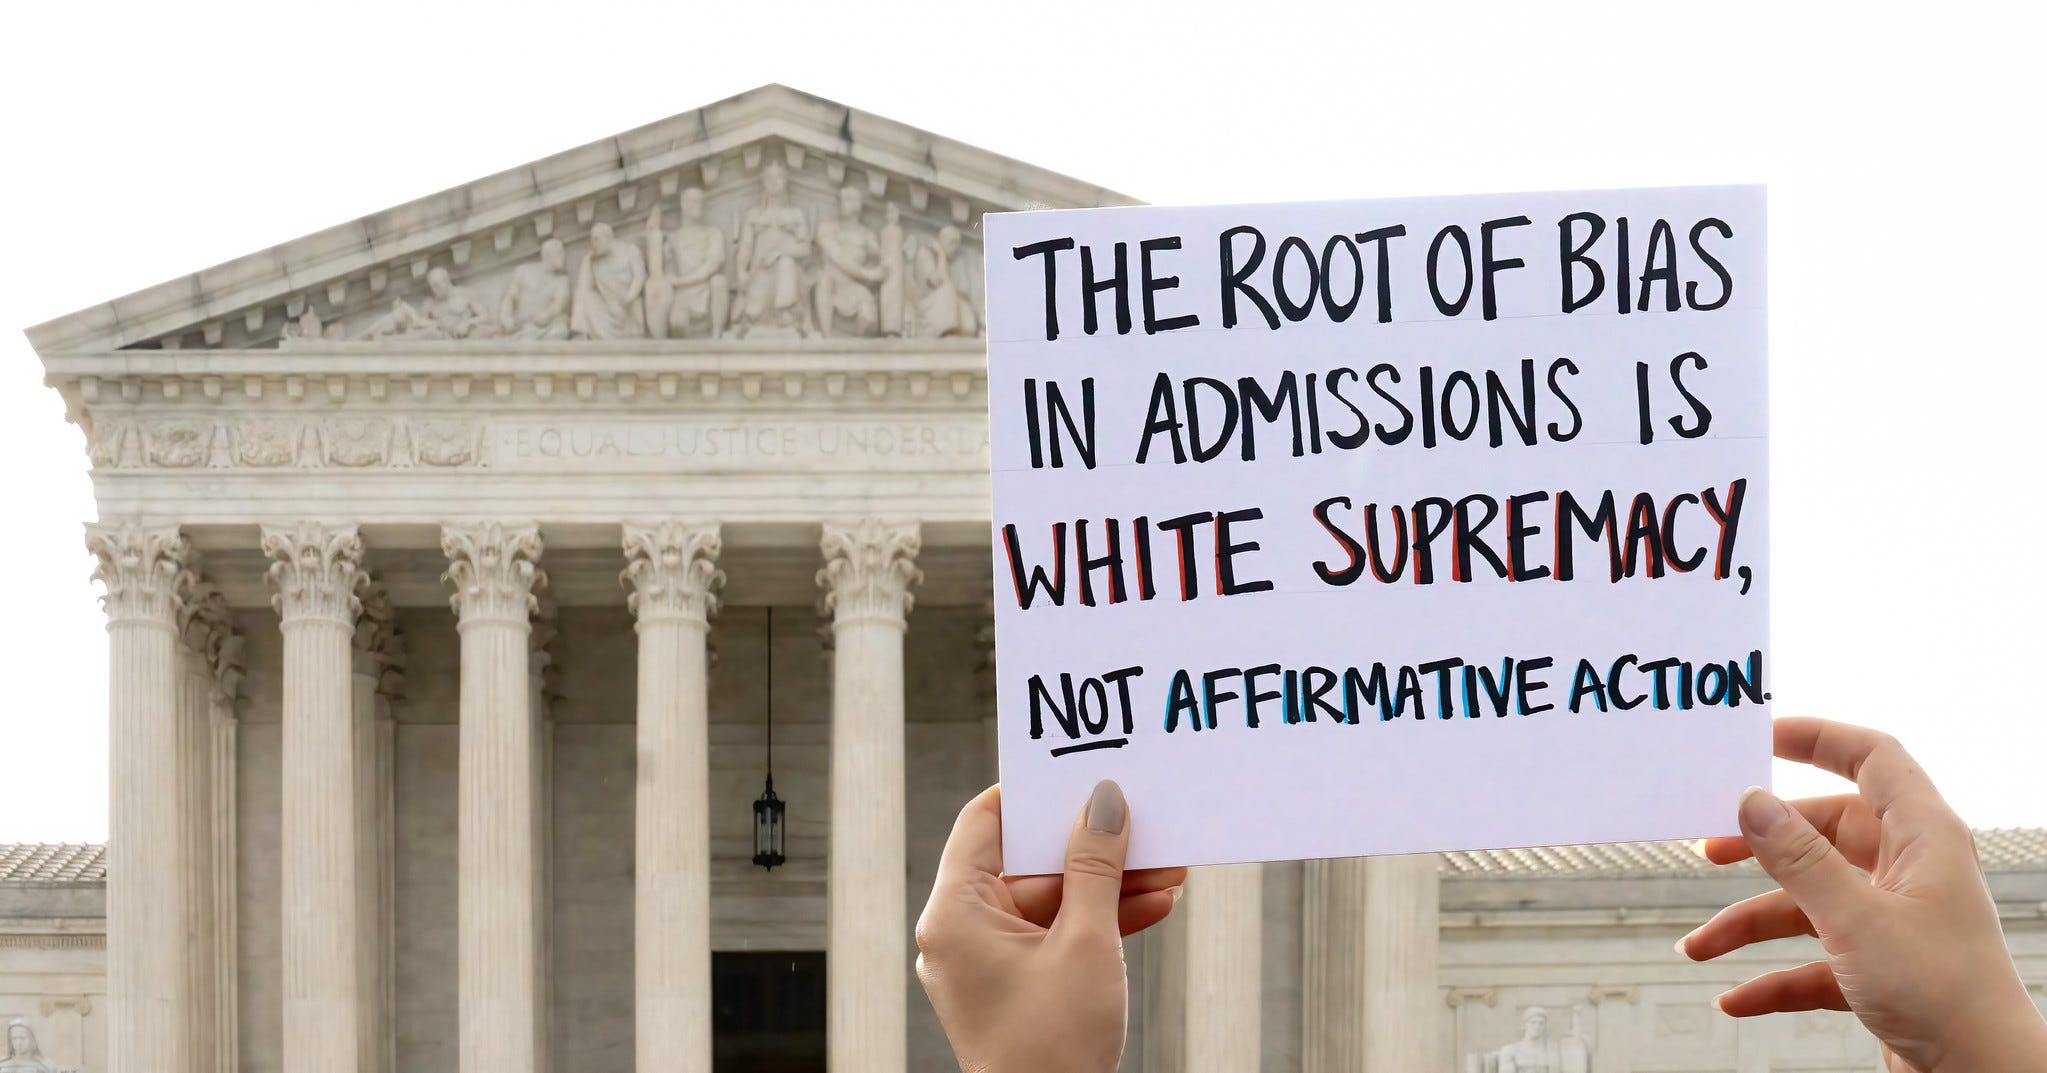 EQUAL JUSTICE UNDER
THE ROOT OF BIAS
IN ADMISSIONS IS
WHITE SUPREMACY,
NOT AFFIRMATIVE ACTION.